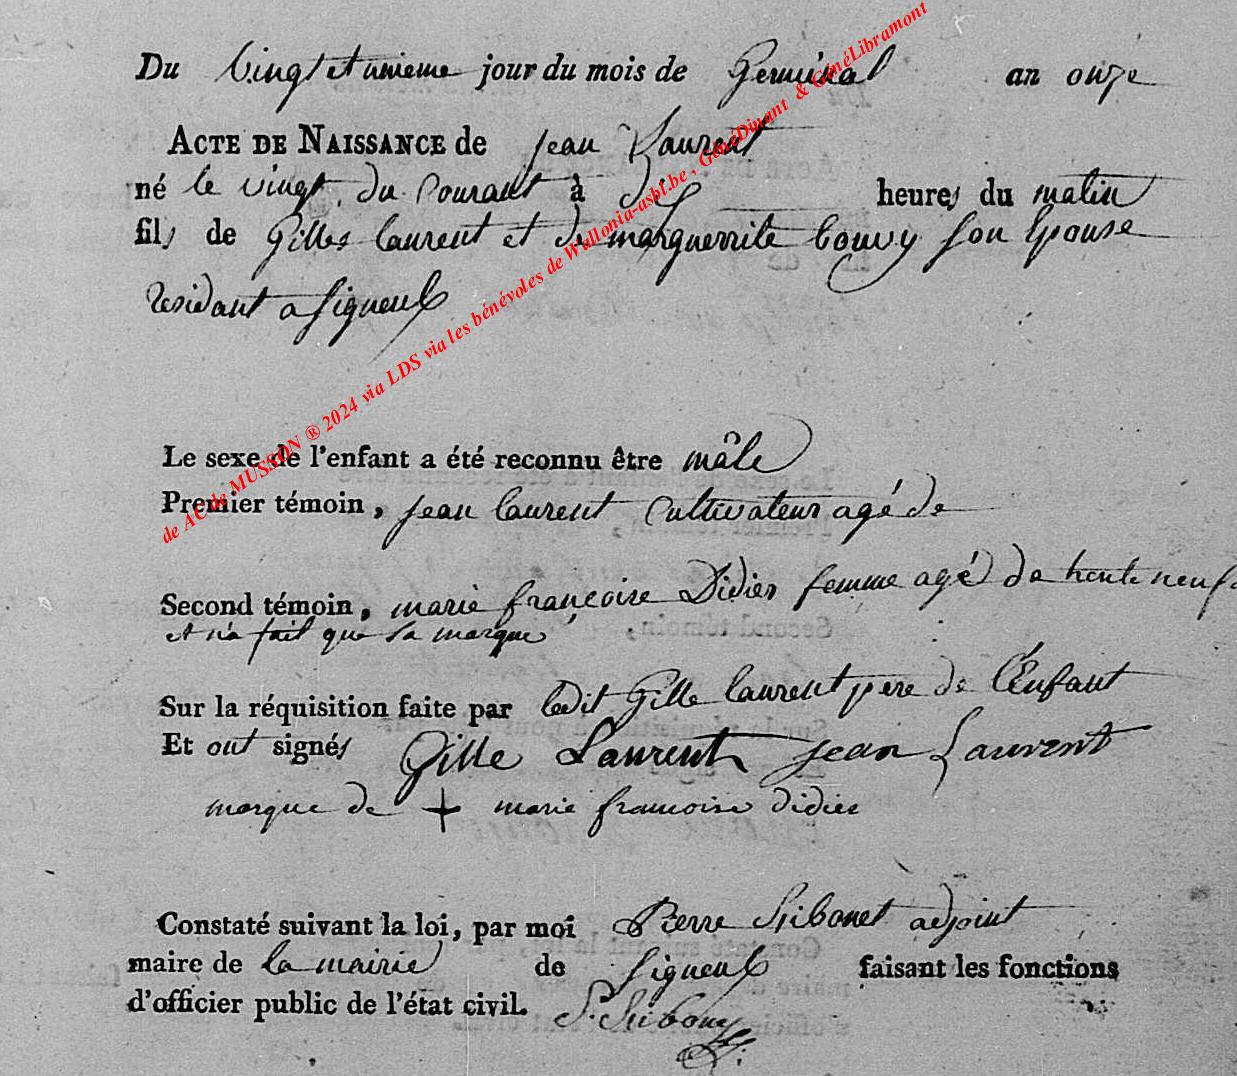 Du Vingt et unieme jour du mois de Germinal an onze
ACTE DE NAISSANCE de jean Laurent
né le vingt du Courant à dix heures du matin
fils de Gilles laurent et de marguerrite bouvy son Epouse
residant a signeulx
Le sexe de l'enfant a été reconnu être mâle
Premier témoin, jean laurent Cultivateur agé de
Second témoin, marie françoise Didier femme agé de trente neuf
et n'a fait que sa marque
Sur la réquisition faite par ledit Gille laurent pere de l'Enfant
Et ont signés Gille Laurent jean Laurent
marque de + marie francoise didier
Constaté suivant la loi, par moi Pierre adjoint
maire de la mairie de signeulx faisant les fonctions
d'officier public de l'état civil. P.
de AC de MUSSON ® 2024 via LDS via les bénévoles de Wallonia-asbl.be , GénéDinant & GénéLibramont